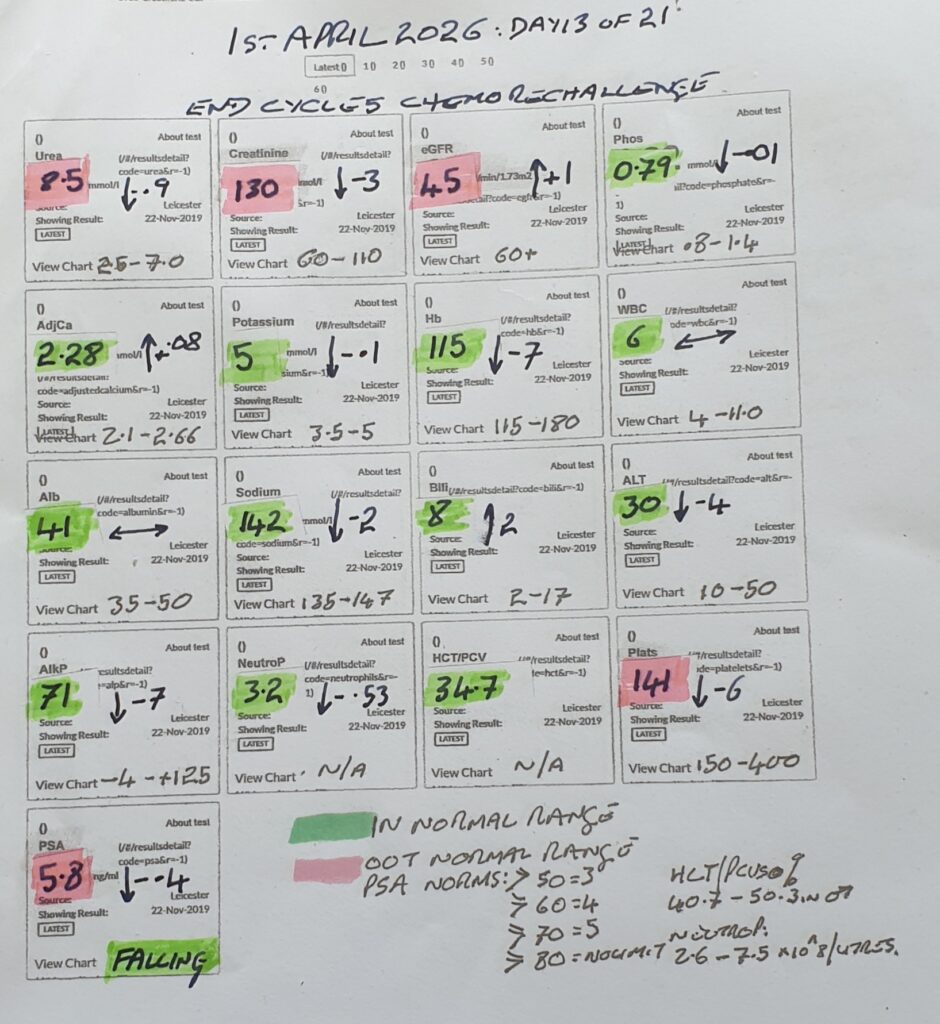 1ST APRIL 2026: DAY13 OF 21
Latest 0 10 20 30 40 50
60
END CYCLE 5 CHEMO RECHALLENGE
()
About test
Urea
(/#/resultsdetail?
code=urea&r=-1)
8.5 mmol/l ↓-.9
Source:
Leicester
Showing Result:
22-Nov-2019
LATEST
View Chart 2.5-7.0
()
About test
Creatinine
(/#/resultsdetail?
130 ↓-3
Source:
Leicester
Showing Result:
22-Nov-2019
LATEST
View Chart 60-110
()
About test
eGFR
45 /min/1.73m2 ↑+1
Source:
Leicester
Showing Result:
22-Nov-2019
LATEST
View Chart 60+
()
About test
Phos
0.79 mmol/l ↓-01
ail?code=phosphate&r=-
1)
Source:
Leicester
Showing Result:
22-Nov-2019
LATEST
View Chart .8-1.4
()
About test
AdjCa
2.28 mmol/l ↑+.08
(/#/resultsdetail?
code=adjustedcalcium&r=-1)
Source:
Leicester
Showing Result:
22-Nov-2019
LATEST
View Chart 2.1-2.66
()
About test
Potassium
(/#/resultsdetail?
5 mmol/l ↓-.1
sium&r=-1)
Source:
Leicester
Showing Result:
22-Nov-2019
LATEST
View Chart 3.5-5
()
About test
Hb
(/#/resultsdetail?
code=hb&r=-1)
115 ↓-7
Source:
Leicester
Showing Result:
22-Nov-2019
LATEST
View Chart 115-180
()
About test
WBC
(/#/resultsdetail?
ode=wbc&r=-1)
6 ↔
Source:
Leicester
Showing Result:
22-Nov-2019
LATEST
View Chart 4-11.0
()
About test
Alb
(/#/resultsdetail?
code=albumin&r=-1)
41 ↔
Source:
Leicester
Showing Result:
22-Nov-2019
LATEST
View Chart 35-50
()
About test
Sodium
(/#/resultsdetail?
142 mmol/l ↓-2
code=sodium&r=-1)
Source:
Leicester
Showing Result:
22-Nov-2019
LATEST
View Chart 135-147
()
About test
Bili (/#/resultsdetail?code=bili&r=-1)
8 ↑2
Source:
Leicester
Showing Result:
22-Nov-2019
LATEST
View Chart 2-17
()
About test
ALT /resultsdetail?code=alt&r=-
30 ↓-4
Source:
Leicester
Showing Result:
22-Nov-2019
LATEST
View Chart 10-50
()
About test
AlkP esultsdetail?
=alp&r=-1)
71 ↓-7
Source:
Leicester
Showing Result:
22-Nov-2019
LATEST
View Chart -4-+125
()
About test
NeutroP
(/#/resultsdetail?
code=neutrophils&r=-
1)
3.2 ↓-.53
Source:
Leicester
Showing Result:
22-Nov-2019
LATEST
View Chart N/A
()
About test
HCT/PCV /resultsdetail?
=hct&r=-1)
34.7
Source:
Leicester
Showing Result:
22-Nov-2019
LATEST
View Chart N/A
()
About test
Plats /resultsdetail?
de=platelets&r=-1)
141 ↓-6
Source:
Leicester
Showing Result:
22-Nov-2019
LATEST
View Chart 150-400
()
About test
PSA
(/#/resultsdetail?
code=psa&r=-1)
5.8 ng/ml ↓-.4
Source:
Leicester
Showing Result:
22-Nov-2019
LATEST
View Chart FALLING
IN NORMAL RANGE
OOT NORMAL RANGE
PSA NORMS: > 50=3
> 60=4
> 70=5
> 80=NO LIMIT
HCT/PCV
40.7-50.3 IN
NEUTROP:
2.6-7.5 x10^8/LITRES.